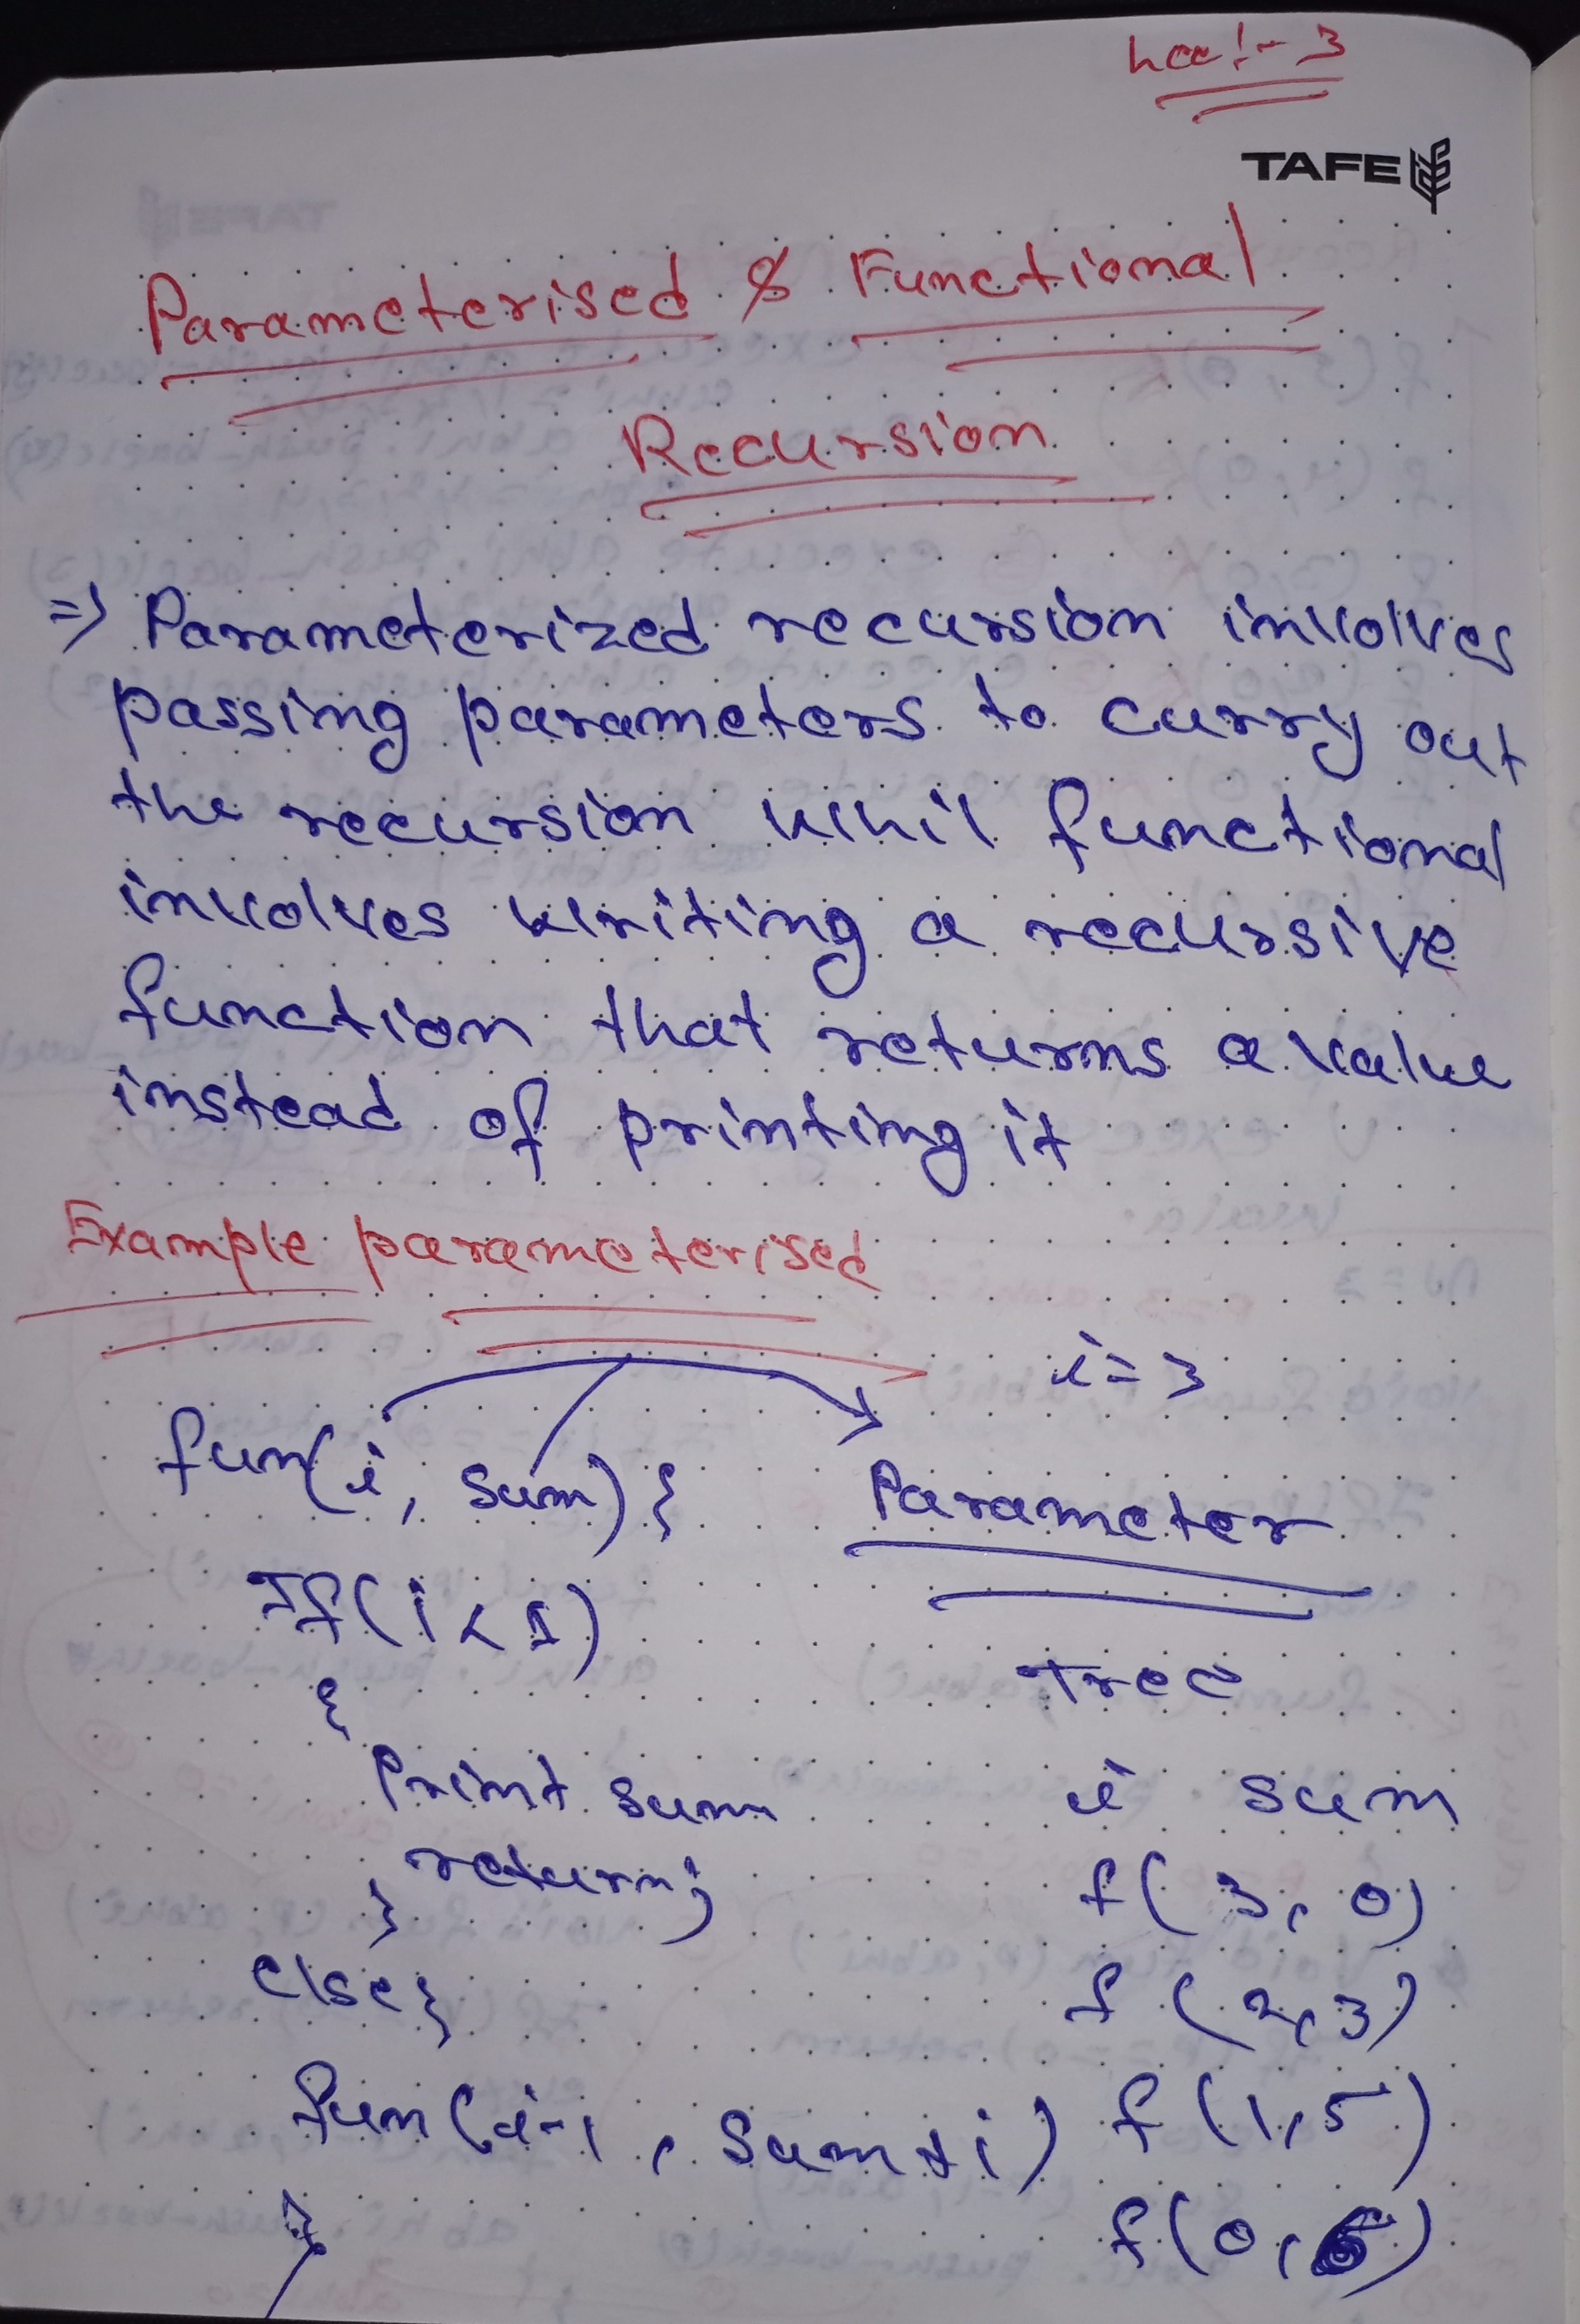 Lec:- 3
TAFE
Parameterised & Functional
Recursion
=> Parameterized recursion involves
passing parameters to carry out
the recursion whil functional
involves writing a recursive
function that returns a value
instead of printing it
Example parameterised
i = 3
fun(i, sum) {
Parameter
If(i < 1)
Tree
{
Print sum
i sum
return;
f( 3, 0)
}
else{
f (2, 3)
fun(i-1, sum+i)
f(1, 5)
}
f(0, 6)